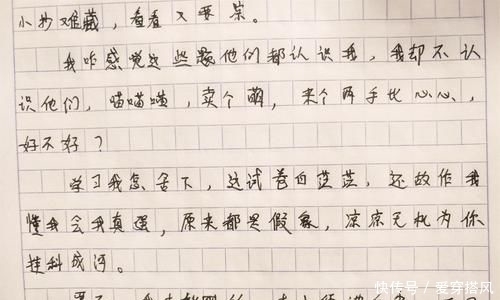 小抄难藏，看看又要祟。
我咋感觉这些题他们都认识我，我却不认
识他们，喵喵喵，卖个萌，来个两手比心心，
好不好？
学习我怎舍下，这试卷白茫茫，还故作我
懂我会我真强，原来都是假象，凉凉无机为你
挂科成河。
快传号／爱穿搭风